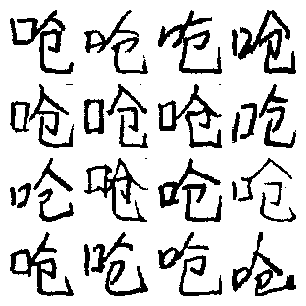 呛呛呛呛
呛呛呛呛
呛呛呛呛
呛呛呛呛